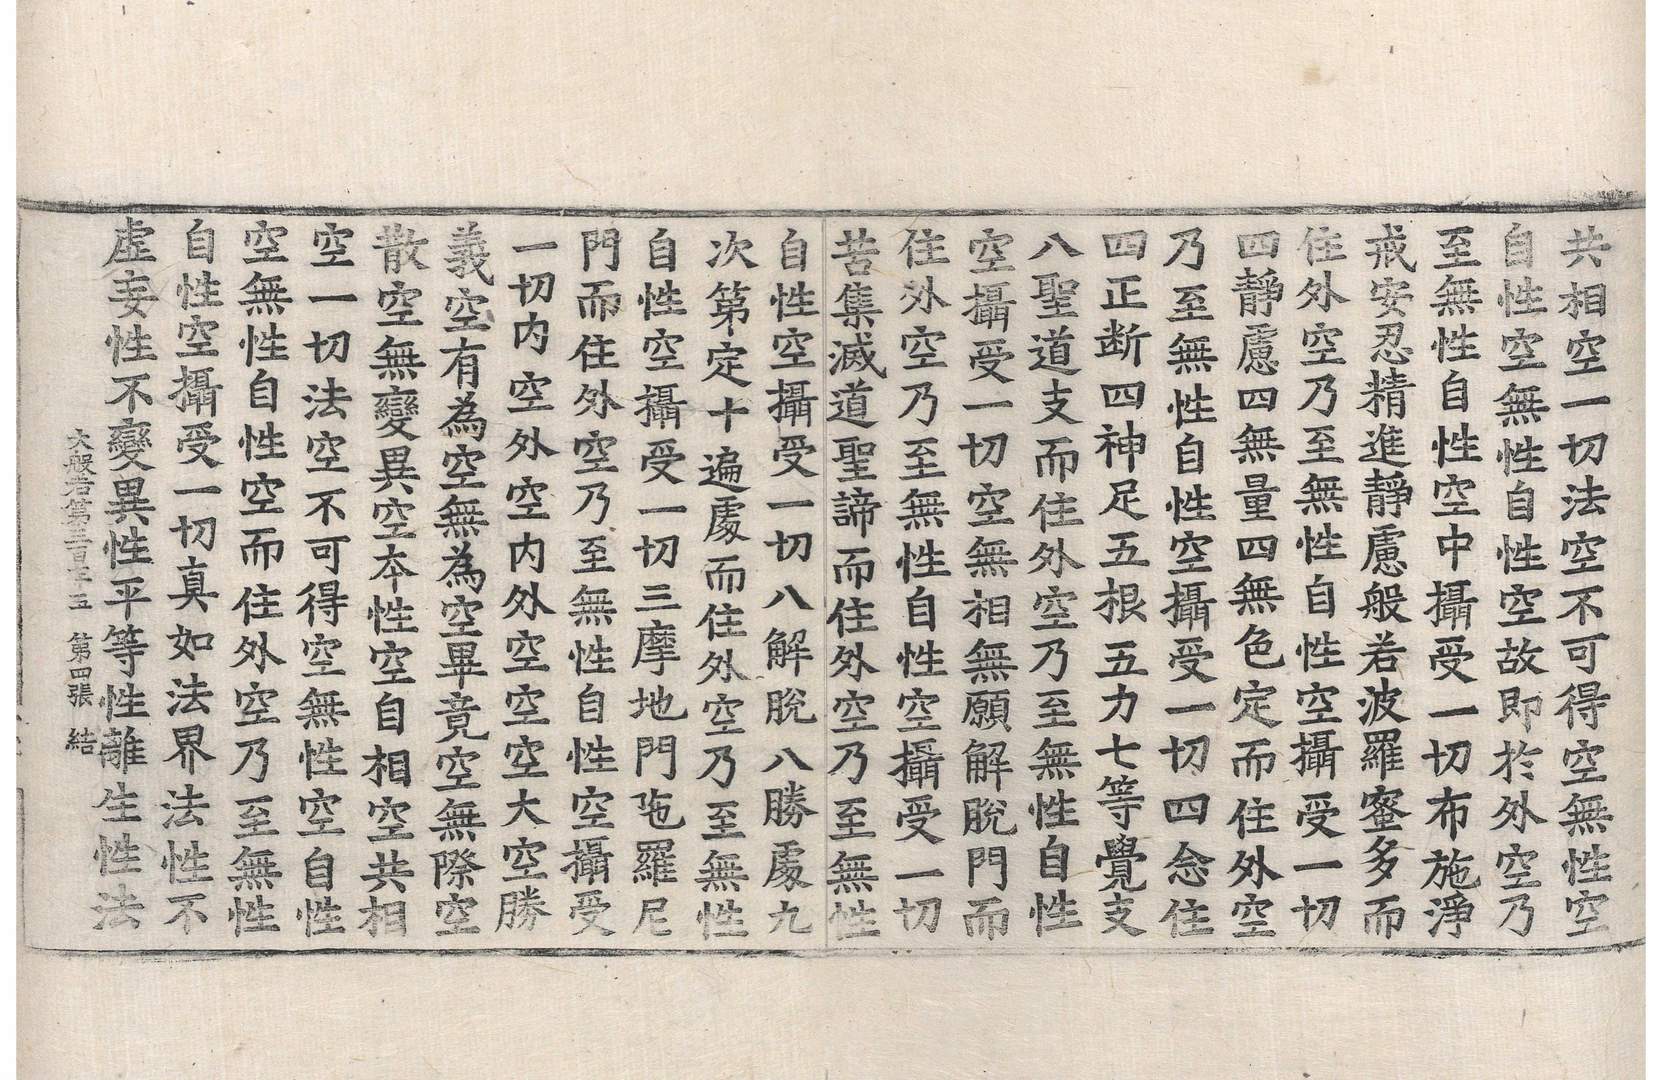 共相空一切法空不可得空無性空
自性空無性自性空故即於外空乃
至無性自性空中攝受一切布施淨
戒安忍精進靜慮般若波羅蜜多而
住外空乃至無性自性空攝受一切
四靜慮四無量四無色定而住外空
乃至無性自性空攝受一切四念住
四正断四神足五根五力七等覺支
八聖道支而住外空乃至無性自性
空攝受一切空無相無願解脫門而
住外空乃至無性自性空攝受一切
苦集滅道聖諦而住外空乃至無性
自性空攝受一切八解脫八勝處九
次第定十遍處而住外空乃至無性
自性空攝受一切三摩地門陁羅尼
門而住外空乃至無性自性空攝受
一切内空外空内外空空空大空勝
義空有為空無為空畢竟空無際空
散空無變異空夲性空自相空共相
空一切法空不可得空無性空自性
空無性自性空而住外空乃至無性
自性空攝受一切真如法界法性不
虛妄性不變異性平等性離生性法
大般若第三百五 第四張 結